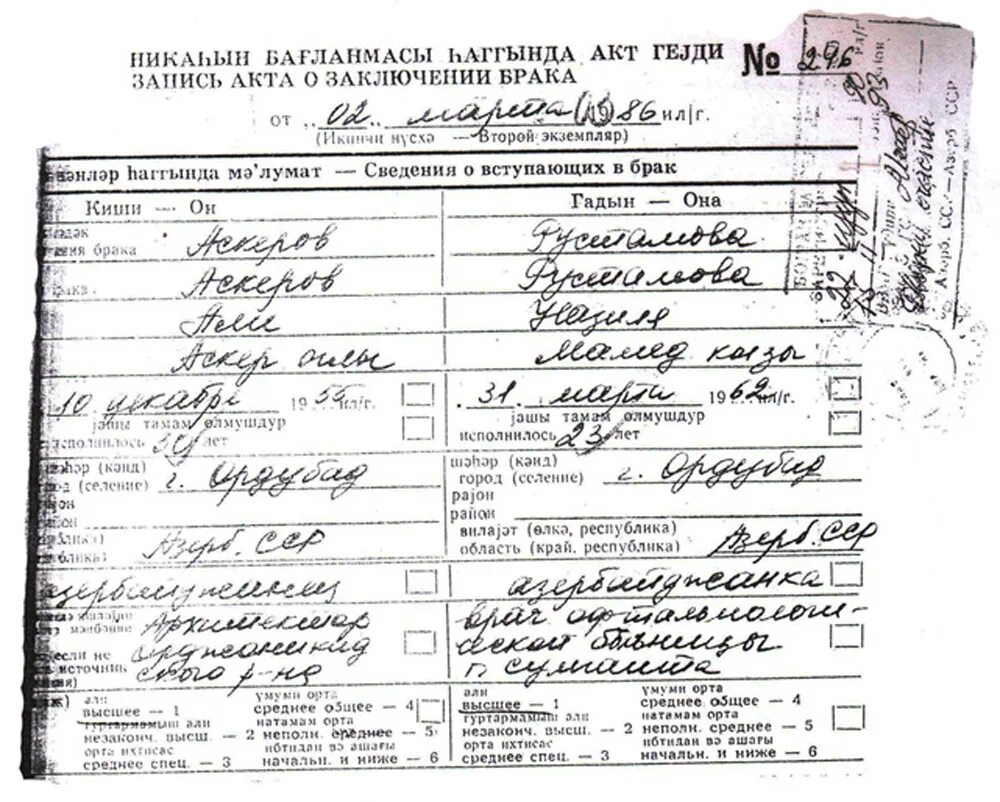 НИКАҺЫН БАҒЛАНМАСЫ ҺАГГЫНДА АКТ ГЕЈДИ № 296
ЗАПИСЬ АКТА О ЗАКЛЮЧЕНИИ БРАКА
от „02„ марта (19)86 ил/г.
(Икинчи нүсхә — Второй экземпляр)
әнләр һаггында мә'лумат — Сведения о вступающих в брак
Киши — Он Гадын — Она
ния брака Аскеров Рустамова
Аскеров Рустамова
Али Назиля
Аскер оглы Мамед кызы
10 декабря 1955 ил/г. 31 марта 1962 ил/г.
јашы тамам өлмушдур јашы тамам өлмушдур
исполнилось 30 лет исполнилось 23 лет
шәһәр (кәнд) шәһәр (кәнд)
од (селение) г. Ордубад город (селение) г. Ордубад
јон рајон
он район
вилајәт (өлкә, республика)
блика) Азерб. ССР область (край, республика) Азерб. ССР
азербайджанец азербайджанка
Архитектор врач офтальмологи-
орджоникид ческой больницы
ского р-на г. Сумгаита
али үмуми орта али үмуми орта
высшее — 1 среднее общее — 4 высшее — 1 среднее общее — 4
гуртармамыш али натамам орта гуртармамыш али натамам орта
незаконч. высш. — 2 неполн. среднее — 5 незаконч. высш. — 2 неполн. среднее — 5
орта ихтисас ибтидаи вә ашағы орта ихтисас ибтидаи вә ашағы
среднее спец. — 3 начальн. и ниже — 6 среднее спец. — 3 начальн. и ниже — 6
Азәрб. ССР — Азерб ССР